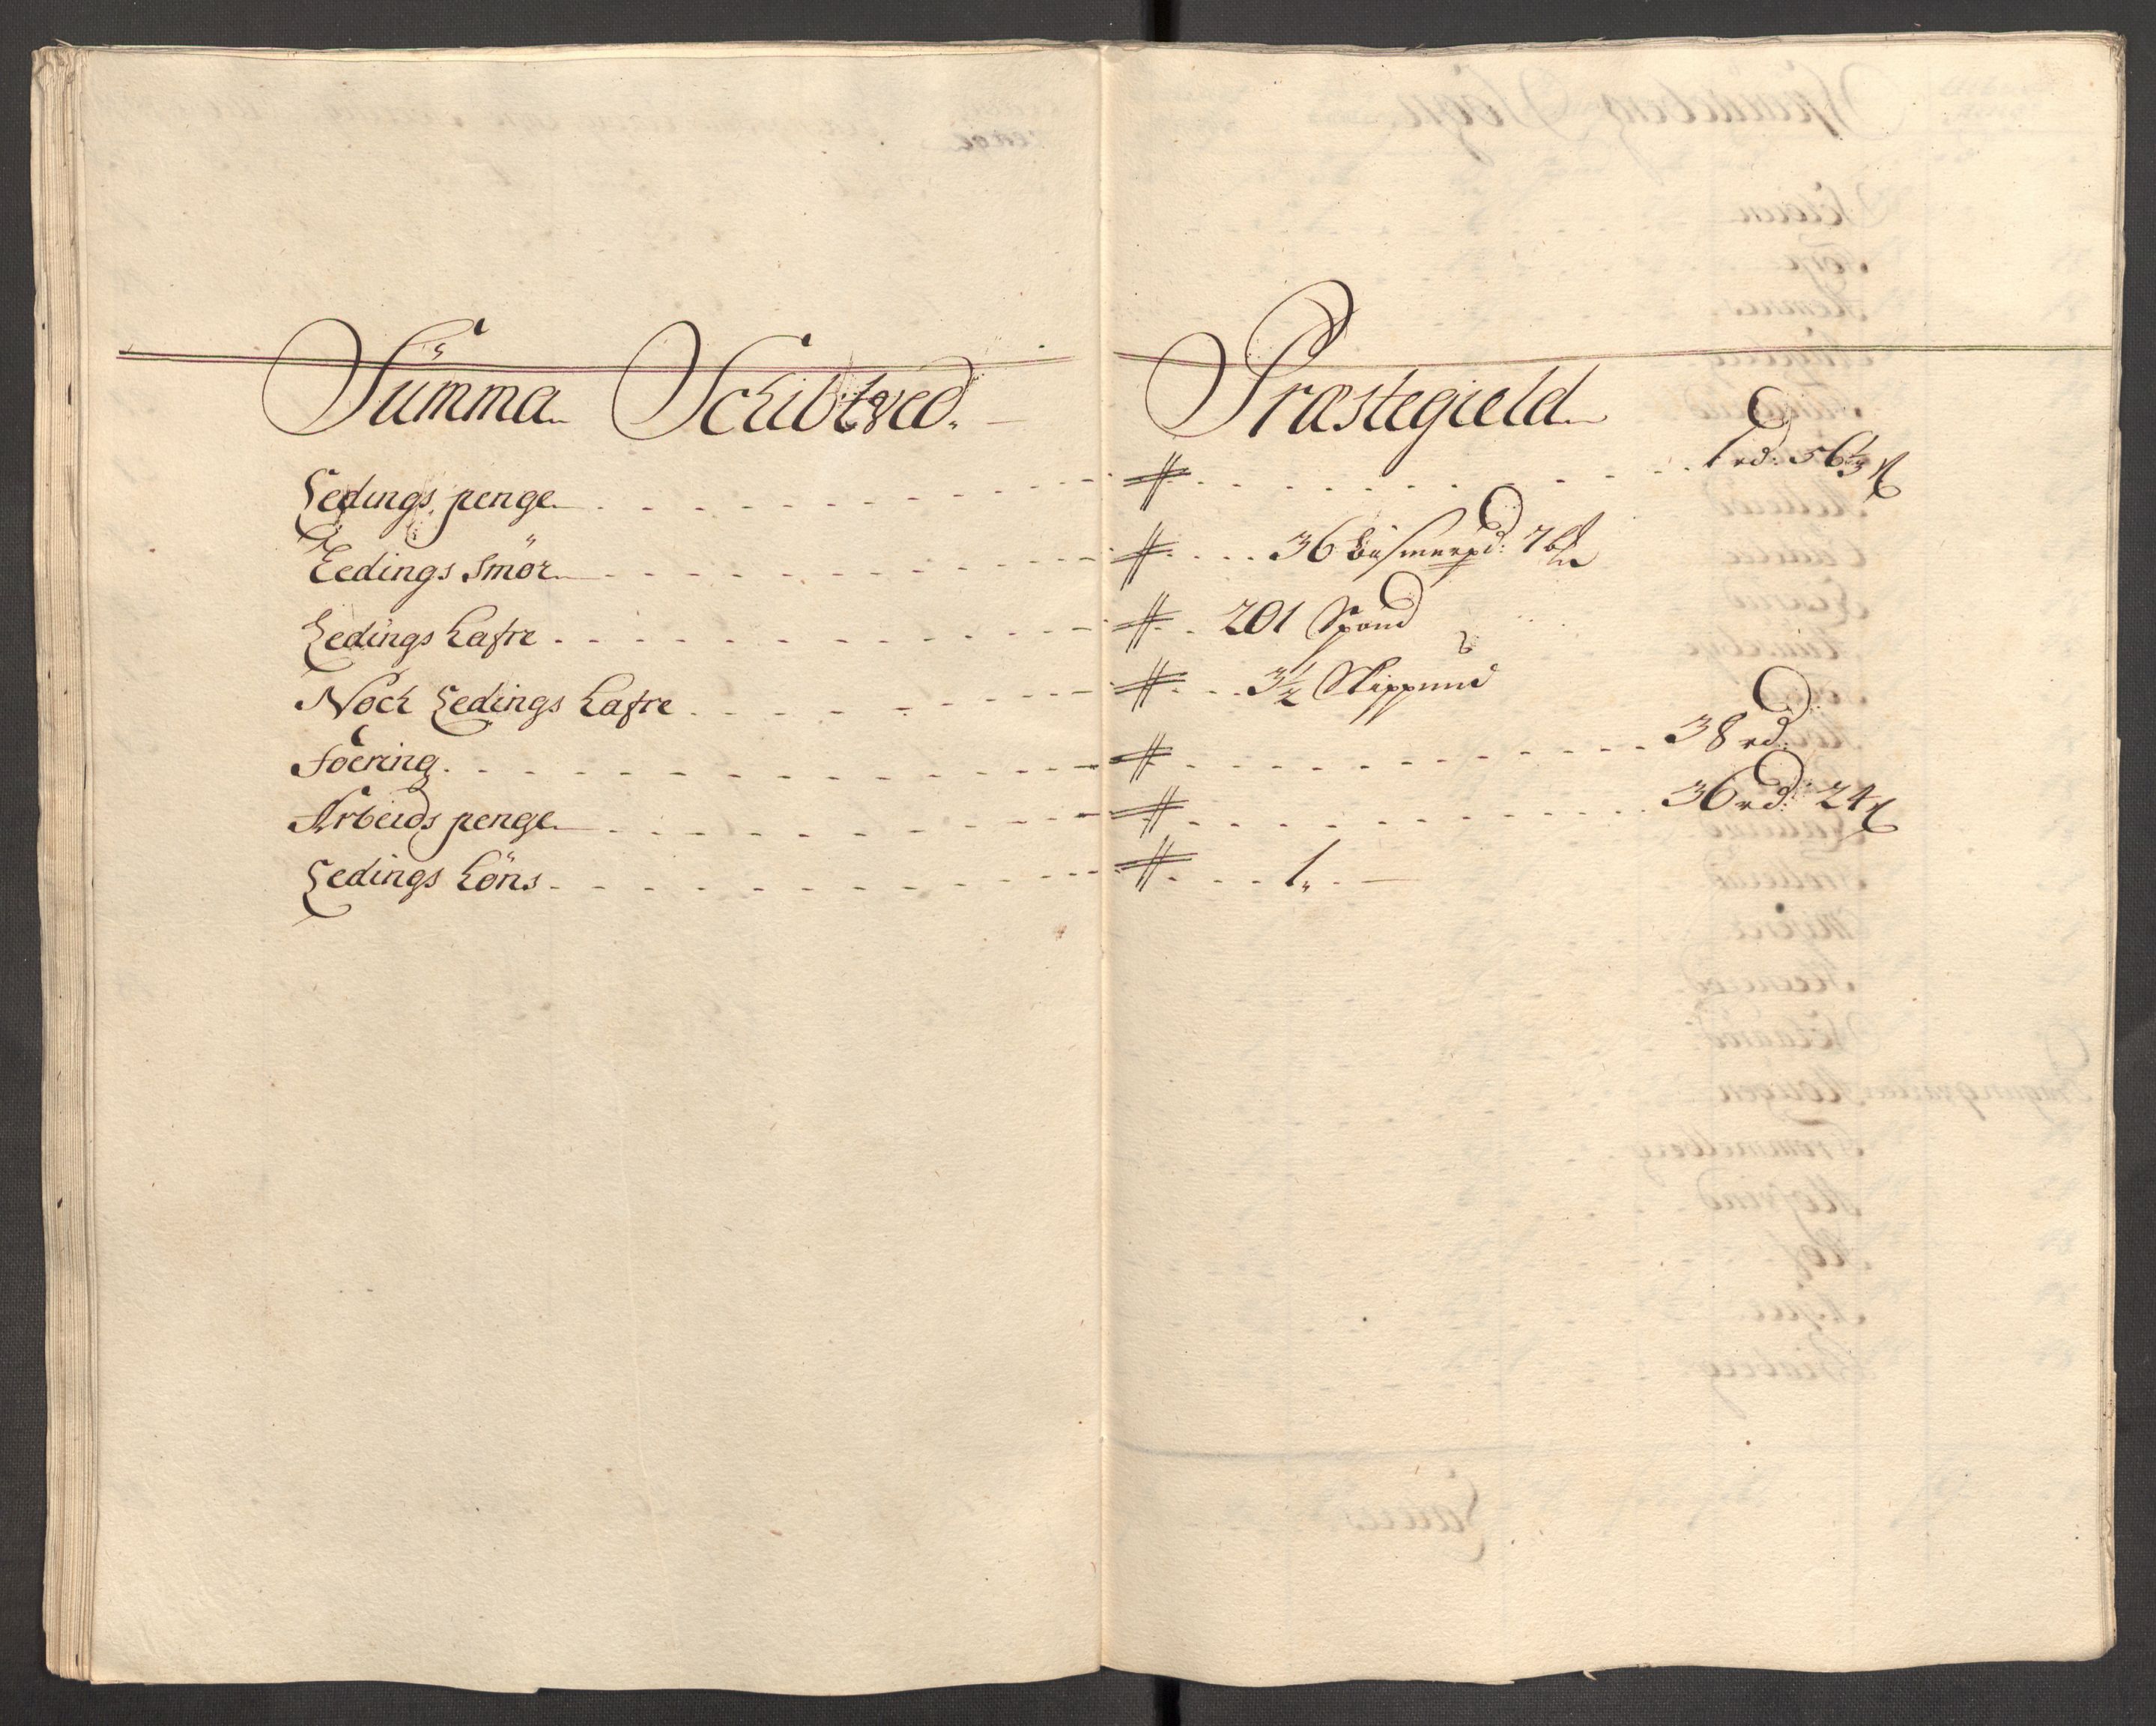 Summa Schibtved. Præstegield
Ledings penge # 1 rd: 56 1/3 ß
Ledings Smör # 36 bismerpd: 7 ℔
Ledings hafre # 201 Spand
Noch Ledings hafre # 3 1/2 Skippund
Foering # 38 rd:
Arbeids penge # 36 rd: 24 ß
Ledings höns # 1 „